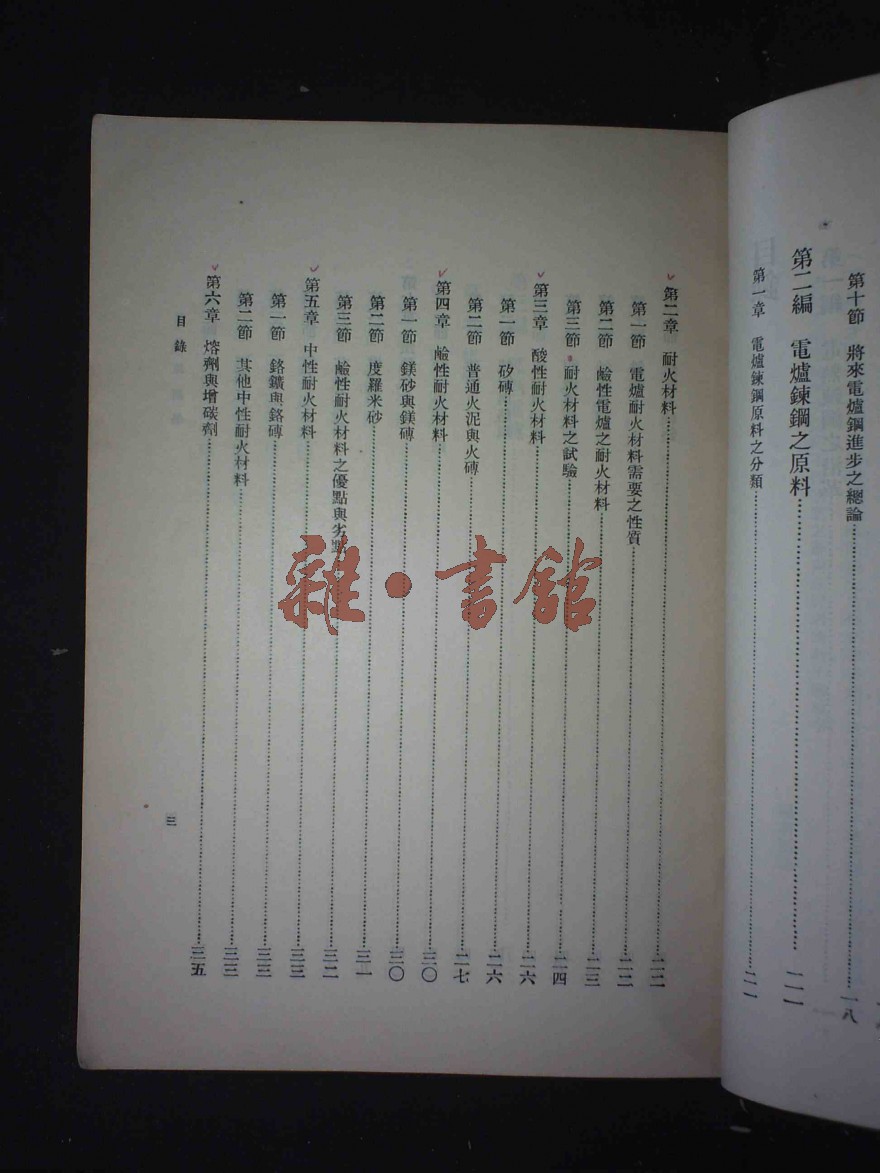 第十節　將來電爐鋼進步之總論……一八
第二編　電爐鍊鋼之原料……二一
第一章　電爐鍊鋼原料之分類……二一
第二章　耐火材料……二二
第一節　電爐耐火材料需要之性質……二二
第二節　鹼性電爐之耐火材料……二三
第三節　耐火材料之試驗……二四
第三章　酸性耐火材料……二六
第一節　矽磚……二六
第二節　普通火泥與火磚……二七
第四章　鹼性耐火材料……三〇
第一節　鎂砂與鎂磚……三〇
第二節　度羅米砂……三一
第三節　鹼性耐火材料之優點與劣點……三二
第五章　中性耐火材料……三三
第一節　鉻鑛與鉻磚……三三
第二節　其他中性耐火材料……三三
第六章　熔劑與增碳劑……三五
目錄
三
雜·書館